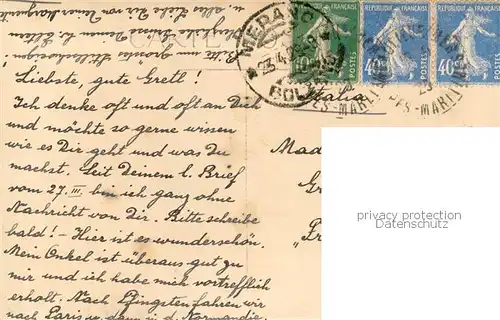 Bitte u. Grüsse
u. alles Liebe Dir von Deiner
Liebste, gute Gretl!
Ich denke oft und oft an Dich
und möchte so gerne wissen
wie es Dir geht und was Du
machst. Seit Deinem l. Brief
vom 27. III. bin ich ganz ohne
Nachricht von Dir. Bitte schreibe
bald! – Hier ist es wunderschön.
Mein Onkel ist überaus gut zu
mir und ich habe mich vortrefflich
erholt. Nach Pfingsten fahren wir
nach Paris u. dann n. d. Normandie.
REPUBLIQUE FRANÇAISE
10c POSTES
REPUBLIQUE FRANÇAISE
40c POSTES
REPUBLIQUE FRANÇAISE
40c POSTES
MERANO
23.4
BOLZANO
ES-MARITIMES
PES-MARITIMES
Italia
Mad
Gr
privacy protection
Datenschutz